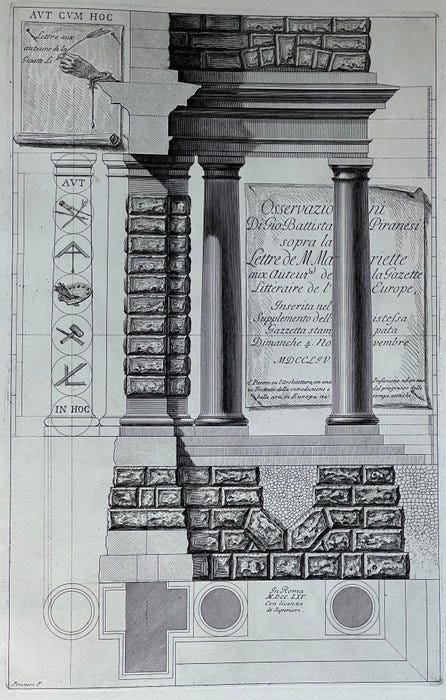 AVT CVM HOC
Lettre aux
auteurs de la
Gazette Li
AVT
IN HOC
Osservazio ni
Di Gio. Battista Piranesi
sopra la
Lettre de M. Ma riette
aux Auteurs de la Gazette
Littéraire de l' Europe,
Inserita nel
Supplemento dell' istessa
Gazzetta stam pata
Dimanche 4. No vembre
MDCCLIV.
In Roma
M.DCC.LXV.
Con licenza
de Superiori
Piranesi F.